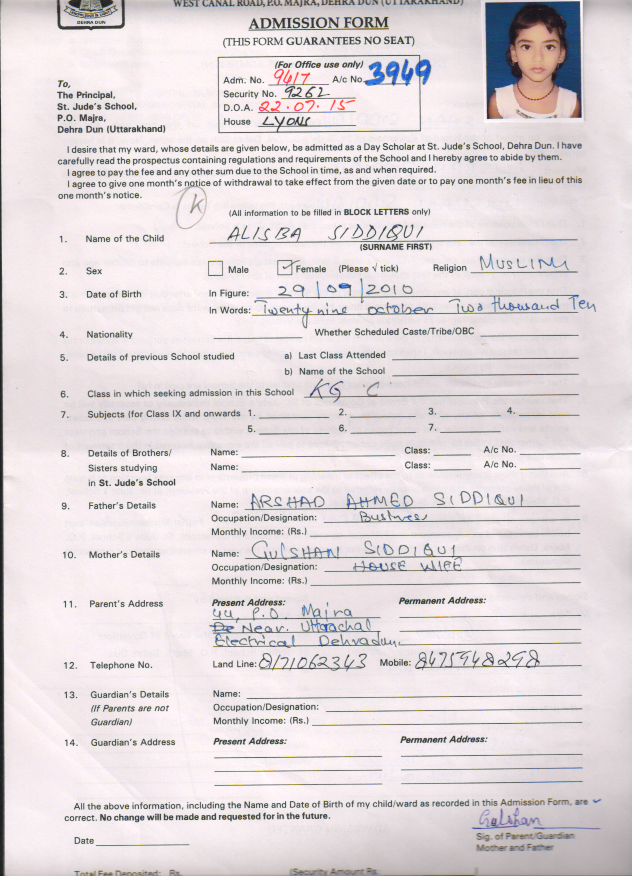 DEHRA DUN
WEST CANAL ROAD, P.O. MAJRA, DEHRA DUN (UTTARAKHAND)
ADMISSION FORM
(THIS FORM GUARANTEES NO SEAT)
(For Office use only)
Adm. No. 9417 A/c No. 3949
Security No. 9262
D.O.A. 22.07.15
House LYONS
To,
The Principal,
St. Jude's School,
P.O. Majra,
Dehra Dun (Uttarakhand)
I desire that my ward, whose details are given below, be admitted as a Day Scholar at St. Jude's School, Dehra Dun. I have
carefully read the prospectus containing regulations and requirements of the School and I hereby agree to abide by them.
I agree to pay the fee and any other sum due to the School in time, as and when required.
I agree to give one month's notice of withdrawal to take effect from the given date or to pay one month's fee in lieu of this
one month's notice.
K
(All information to be filled in BLOCK LETTERS only)
1. Name of the Child ALISBA SIDDIQUI
(SURNAME FIRST)
2. Sex Male ✓ Female (Please √ tick) Religion MUSLIM
3. Date of Birth In Figure: 29/09/2010
In Words: Twenty nine october Two thousand Ten
4. Nationality Whether Scheduled Caste/Tribe/OBC
5. Details of previous School studied a) Last Class Attended
b) Name of the School
6. Class in which seeking admission in this School KG 'C'
7. Subjects (for Class IX and onwards 1. 2. 3. 4.
5. 6. 7.
8. Details of Brothers/ Name: Class: A/c No.
Sisters studying Name: Class: A/c No.
in St. Jude's School
9. Father's Details Name: ARSHAD AHMED SIDDIQUI
Occupation/Designation: Business
Monthly Income: (Rs.)
10. Mother's Details Name: GULSHAN SIDDIQUI
Occupation/Designation: HOUSE WIFE
Monthly Income: (Rs.)
11. Parent's Address Present Address: Permanent Address:
44, P.O. Majra
Near. Uttarachal
Electrical Dehradun.
12. Telephone No. Land Line: 8171062343 Mobile: 8475948298
13. Guardian's Details Name:
(If Parents are not Occupation/Designation:
Guardian) Monthly Income: (Rs.)
14. Guardian's Address Present Address: Permanent Address:
All the above information, including the Name and Date of Birth of my child/ward as recorded in this Admission Form, are ✓
correct. No change will be made and requested for in the future.
Gulshan
Date Sig. of Parent/Guardian
Mother and Father
Total Fee Deposited: Rs. (Security Amount Rs. )